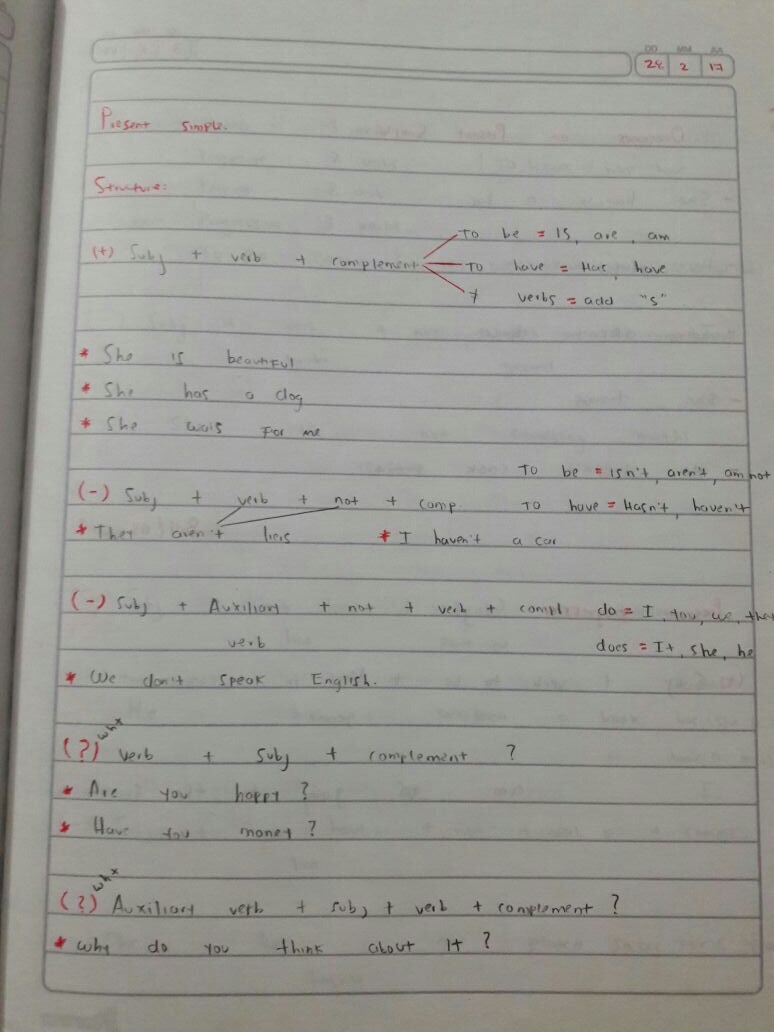 DD MM AA
28 2 17
Present simple.
Structure:
To be = Is, are, am
(+) Subj + verb + complement To have = Has, have
≠ verbs = add "s"
* She is beautiful
* She has a dog
* She wais for me
To be = isn't, aren't, am not
(-) Subj + verb + not + comp. To have = Hasn't, haven't
* They aren't liers * I haven't a car
(-) Subj + Auxiliary + not + verb + compl do = I, you, we, they
verb does = It, she, he
* We don't speak English.
(?) whx verb + subj + complement ?
* Are you happy ?
* Have you money ?
(?) whx Auxiliary verb + subj + verb + complement ?
* Why do you think about it ?